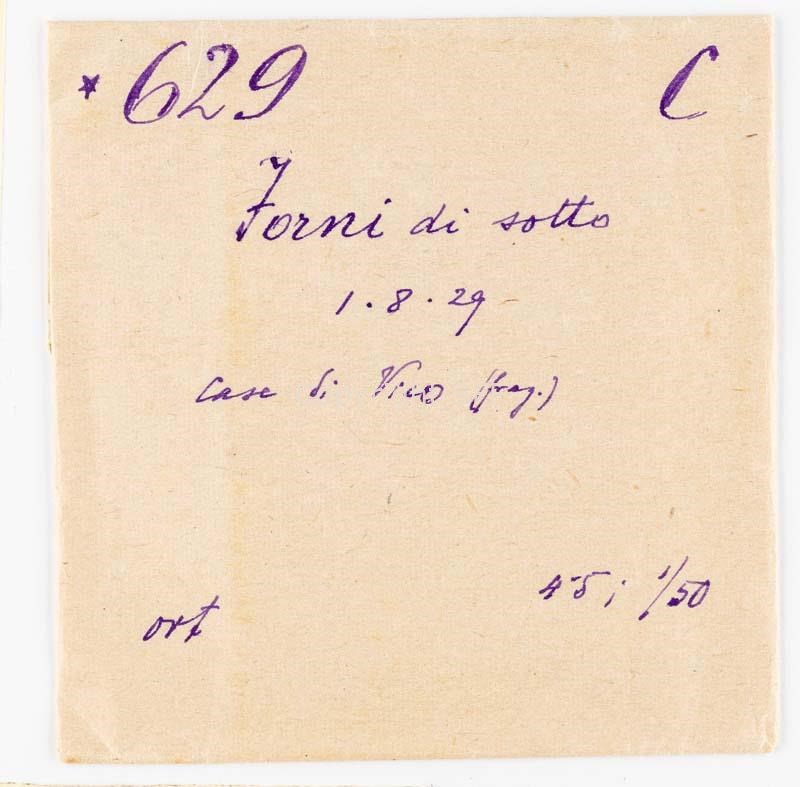 * 629 C
Forni di sotto
1.8.29
case di Vico (fraz.)
4-5; 1/50
ort